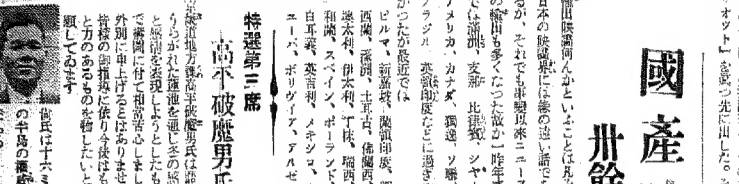 オツト』を眞つ先に出した。
國產
卅餘
輸出映畫何んかといふことは凡そ
日本の映畫界には緣の遠い話で
るが、それでも事變以來ニュース
の輸出も多くなつた爲か一昨年
では滿洲、支那、比律賓、シヤ
アメリカ、カナダ、獨逸、ソ聯
ブラジル、英領印度などに過ぎ
かつたが最近では
ビルマ、新嘉坡、蘭領印度、
西蘭、濠洲、土耳古、佛蘭西、
墺太利、伊太利、丁抹、瑞西、
和蘭、スペイン、ポーランド、
白耳義、英吉利、メキシコ、
ユーバ、ボリヴイア、アルゼ
特選第三席
高木破魔男氏
京城地方課高木破魔男氏は
うらがれた蓮池を通し冬の感
と感情を表現しようとしたも
で構圖に付て相當苦心しまし
外別に申上げるとはありませ
皆樣の御指導に依り今後はも
と力のあるものを物したいと
願してゐます
氏は十六ミ
の半島の權威